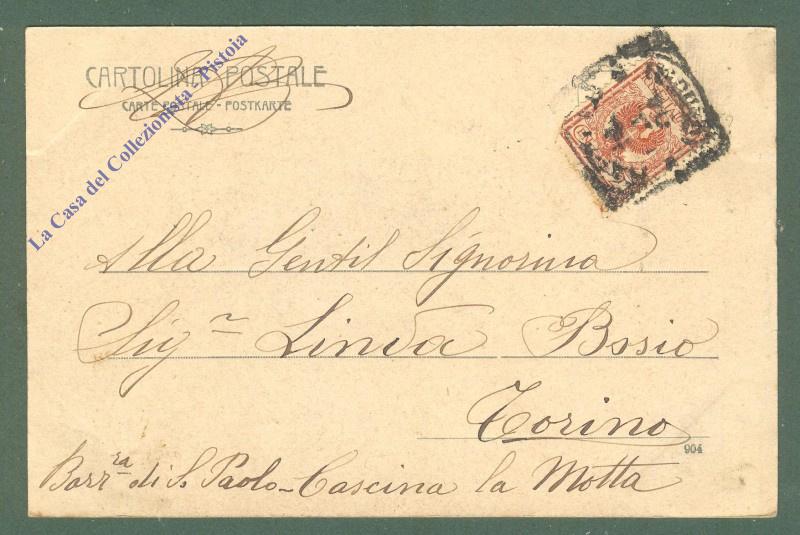 CARTOLINA POSTALE
CARTE POSTALE - POSTKARTE
La Casa del Collezionista - Pistoia
Alla Gentil Signorina
Sig.na Linda Bosio
Torino
904
Barr.ra di S. Paolo - Cascina la Motta